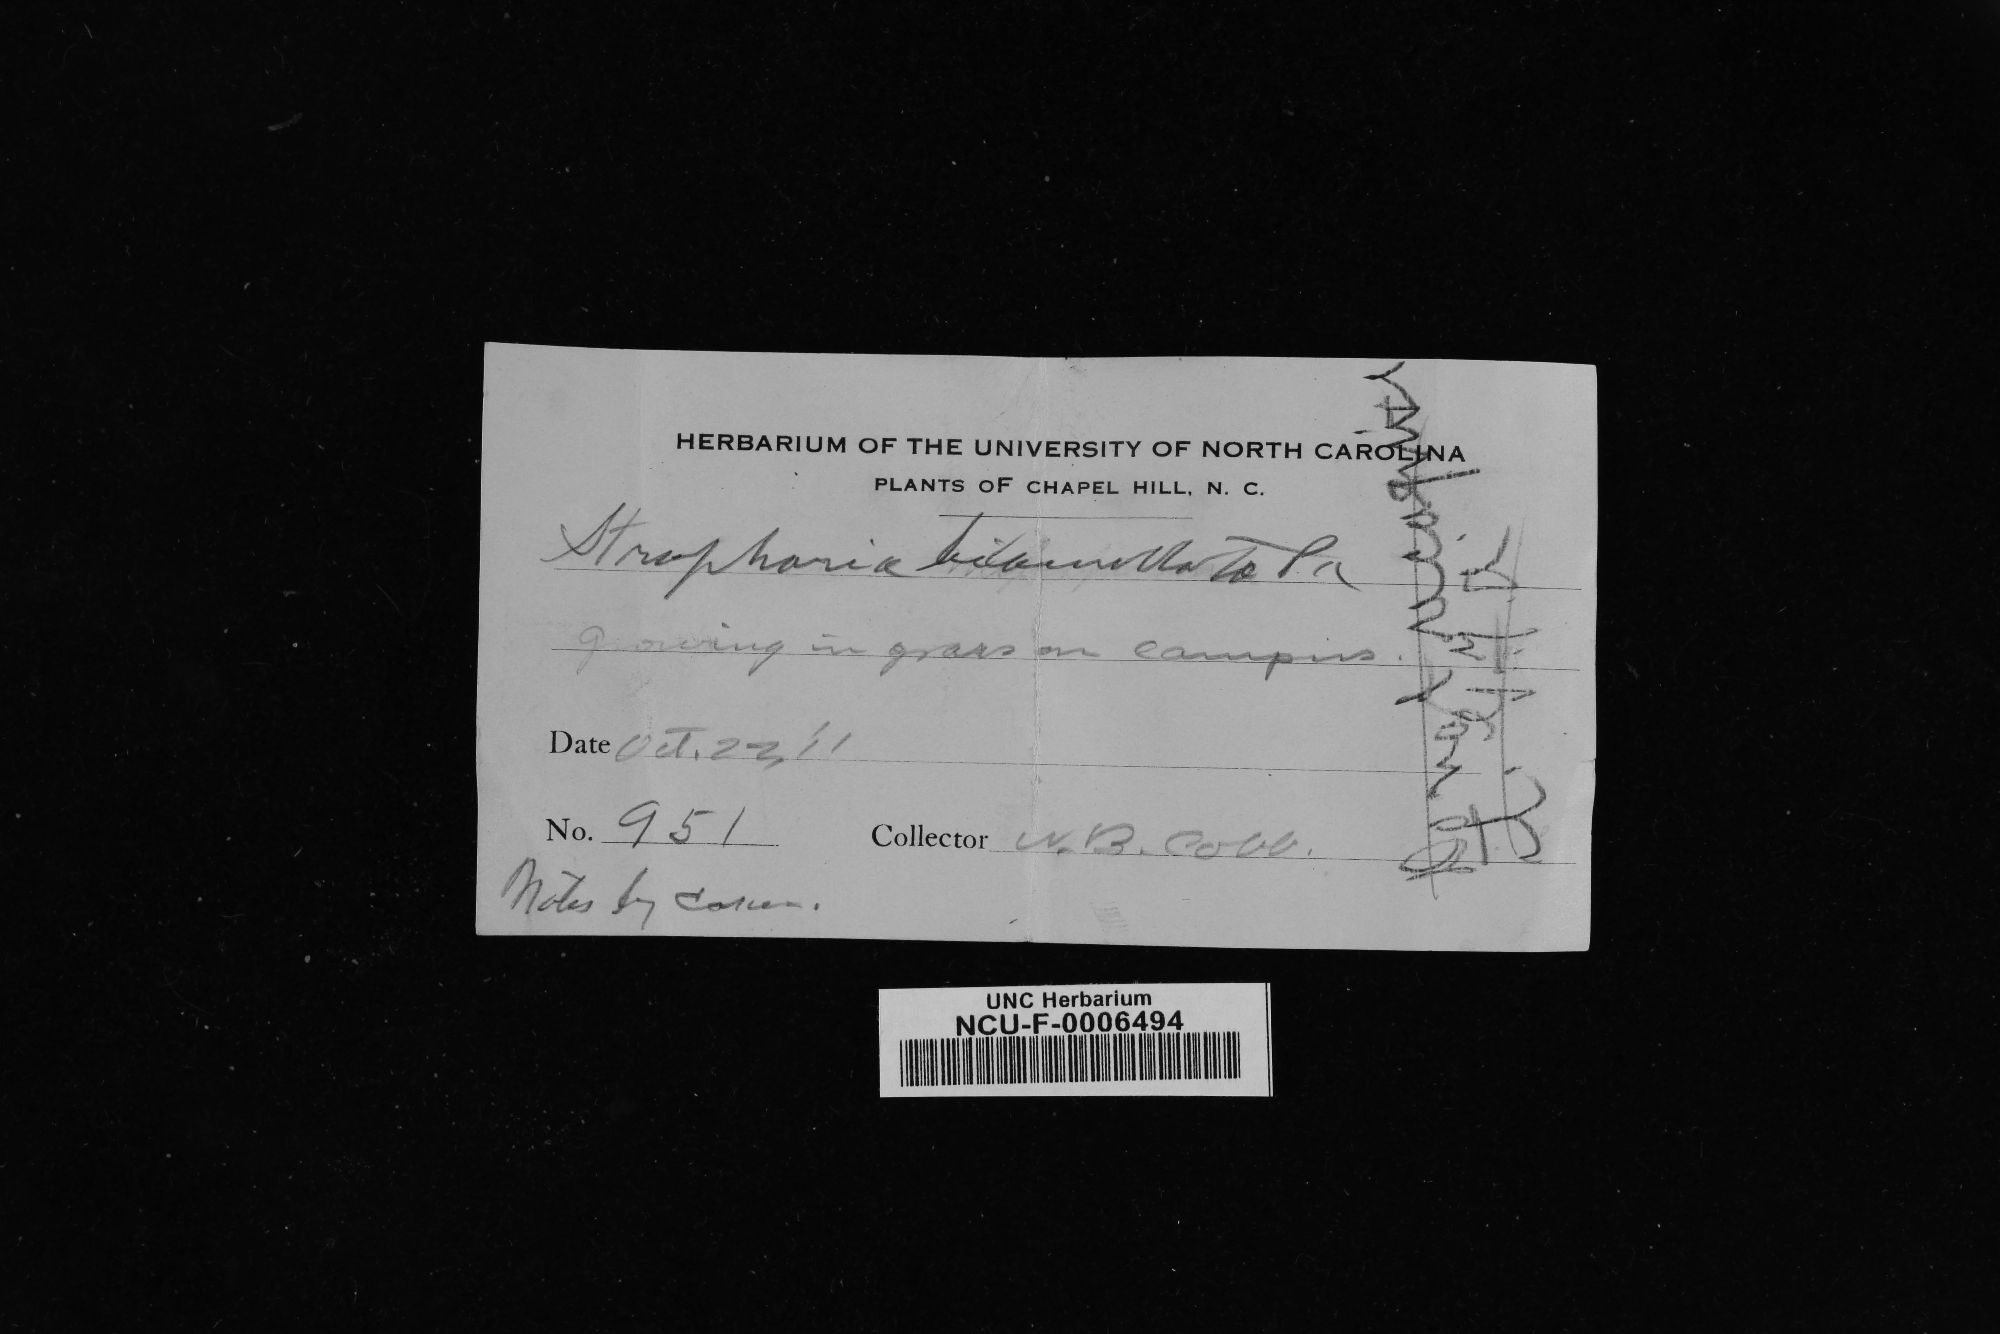 HERBARIUM OF THE UNIVERSITY OF NORTH CAROLINA
PLANTS OF CHAPEL HILL, N. C.
Stropharia bilamellata Pk
growing in grass on campus.
Date Oct. 23, '11
No. 951 Collector W. B. Cobb.
Notes by Coker.
UNC Herbarium
NCU-F-0006494